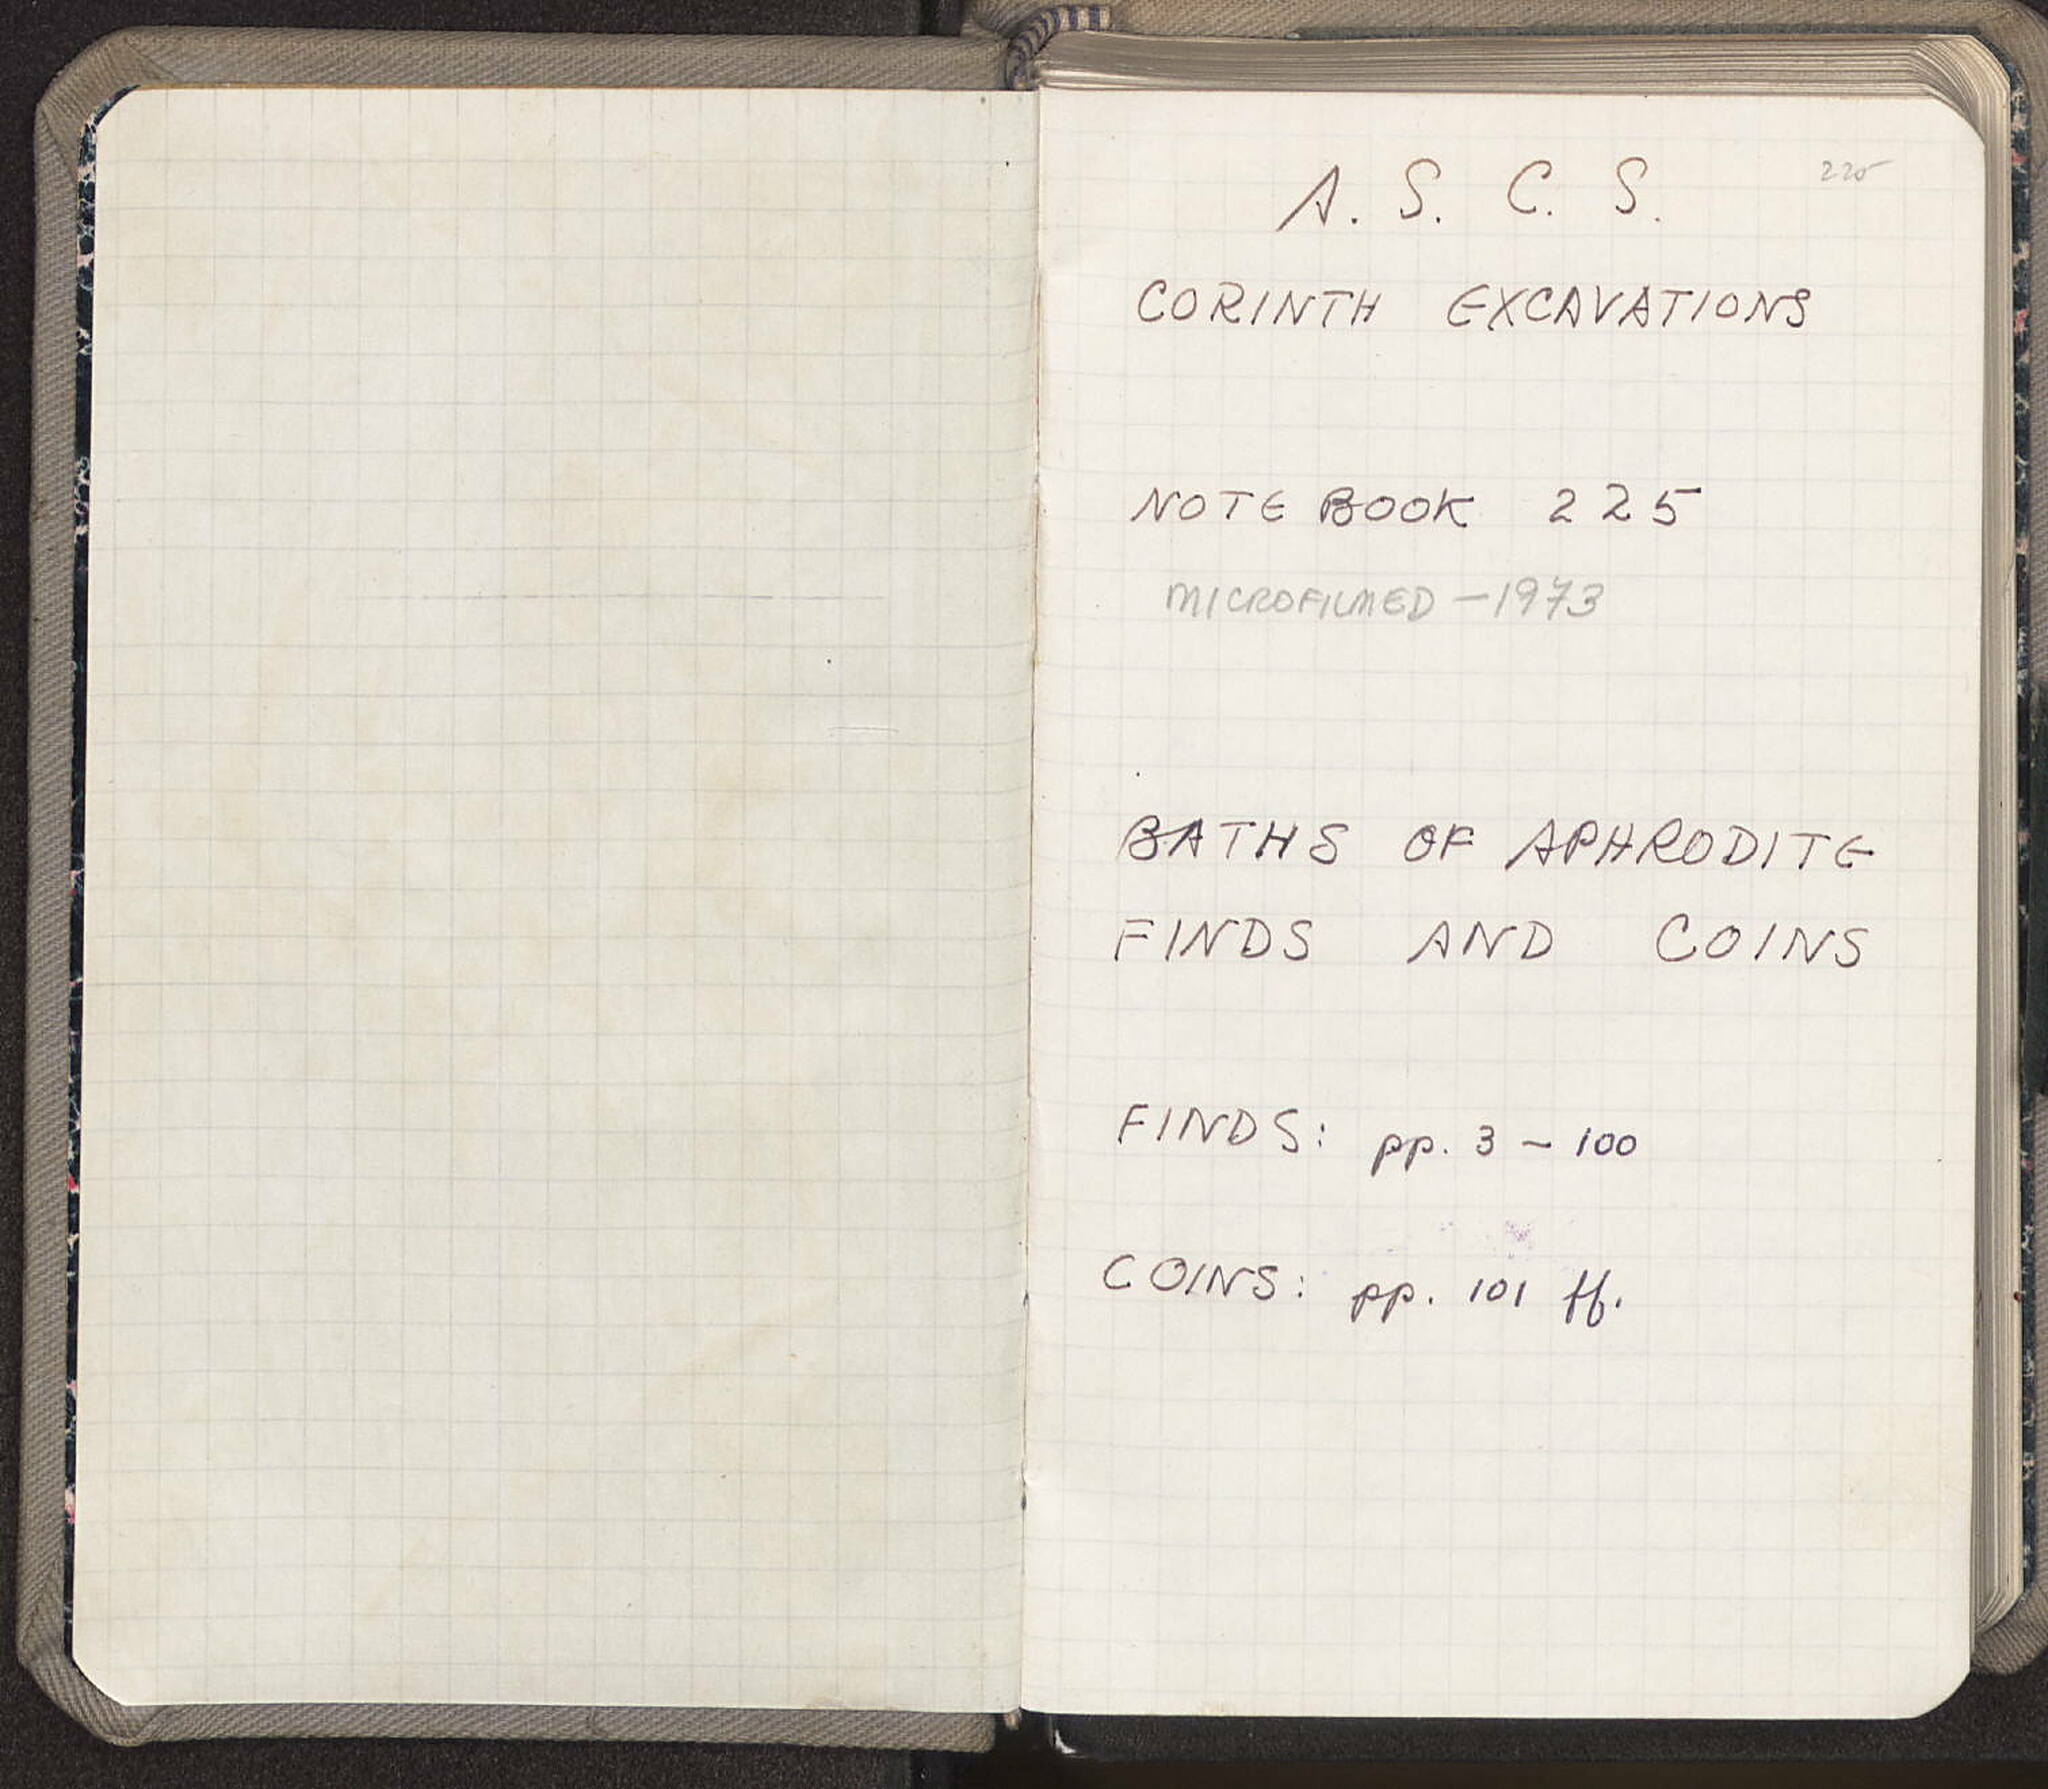 225
A. S. C. S.
CORINTH EXCAVATIONS
NOTE BOOK 225
MICROFILMED - 1973
BATHS OF APHRODITE
FINDS AND COINS
FINDS: pp. 3 - 100
COINS: pp. 101 ff.